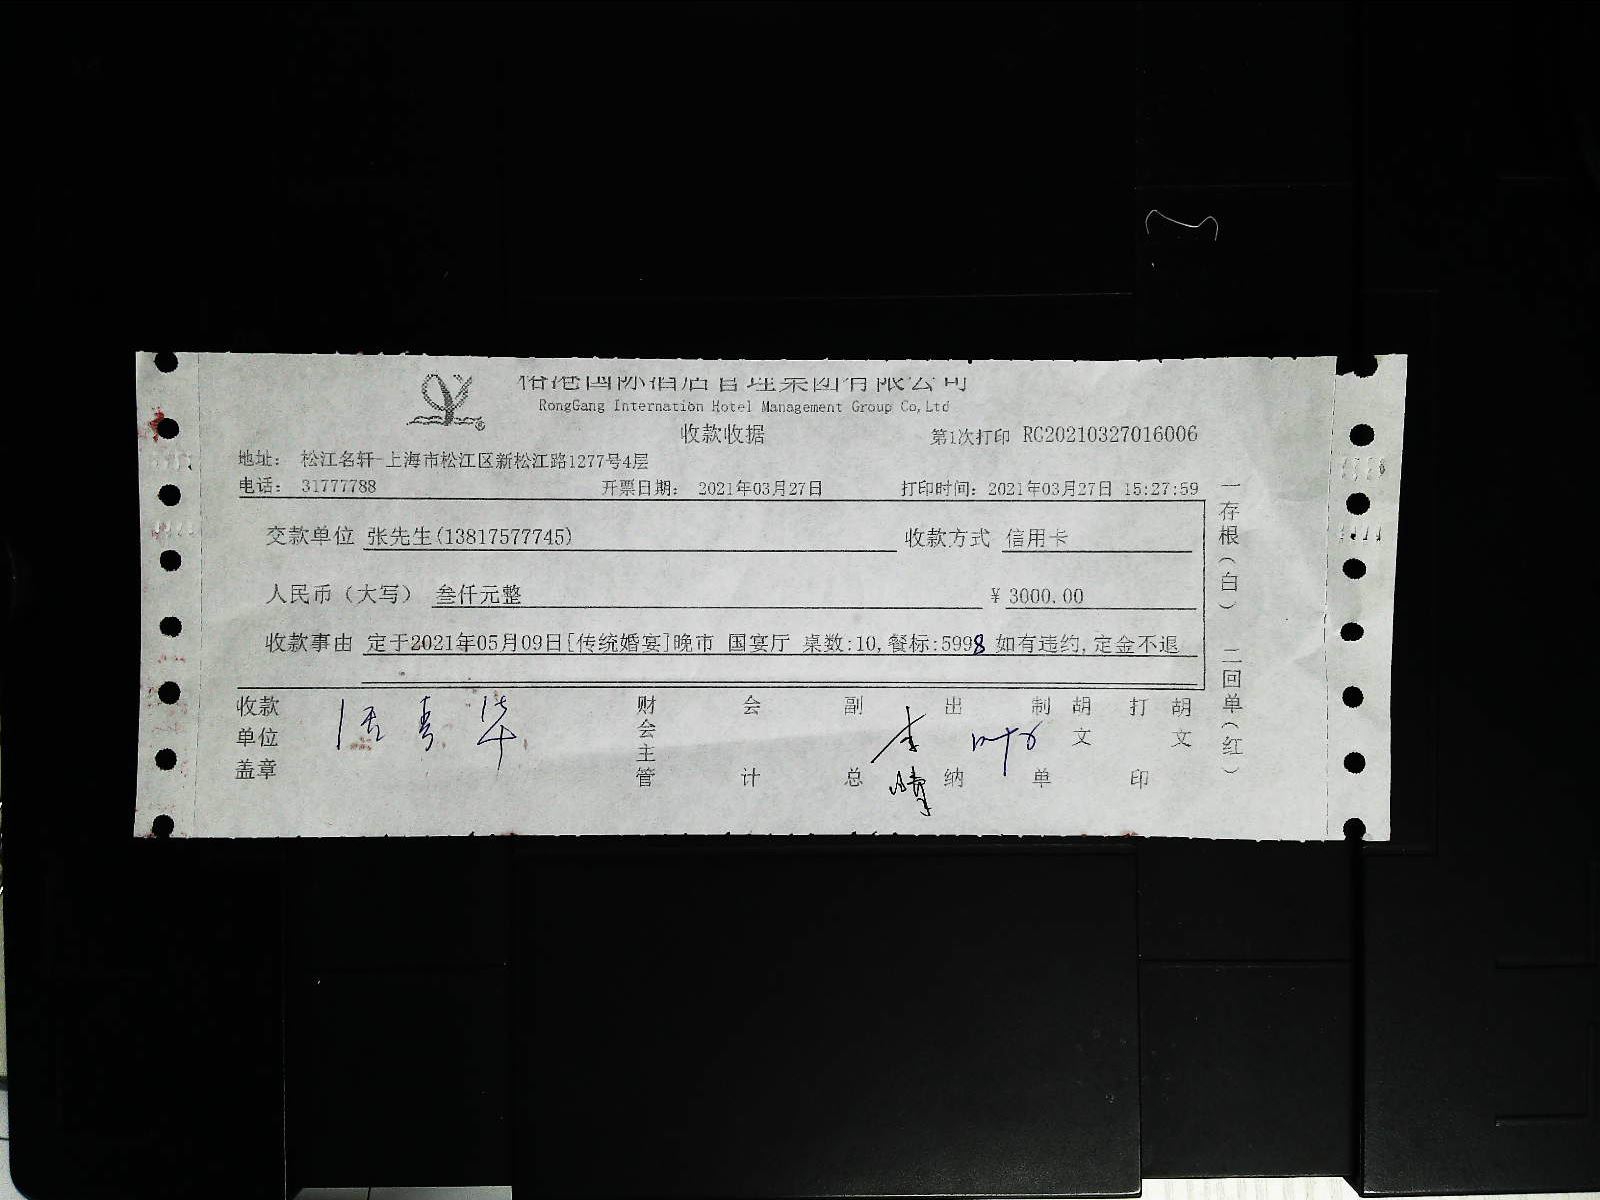 榕港国际酒店管理集团有限公司
RongGang Internation Hotel Management Group Co,Ltd
收款收据 第1次打印 RC20210327016006
地址: 松江名轩-上海市松江区新松江路1277号4层
电话: 31777788 开票日期: 2021年03月27日 打印时间: 2021年03月27日 15:27:59
交款单位 张先生(13817577745) 收款方式 信用卡
人民币(大写) 叁仟元整 ¥ 3000.00
收款事由 定于2021年05月09日[传统婚宴]晚市 国宴厅 桌数:10,餐标:5998 如有违约,定金不退
收款单位盖章 财会主管 会计 副总 李 出纳 制单 胡文 打印 胡文
一存根(白) 二回单(红)